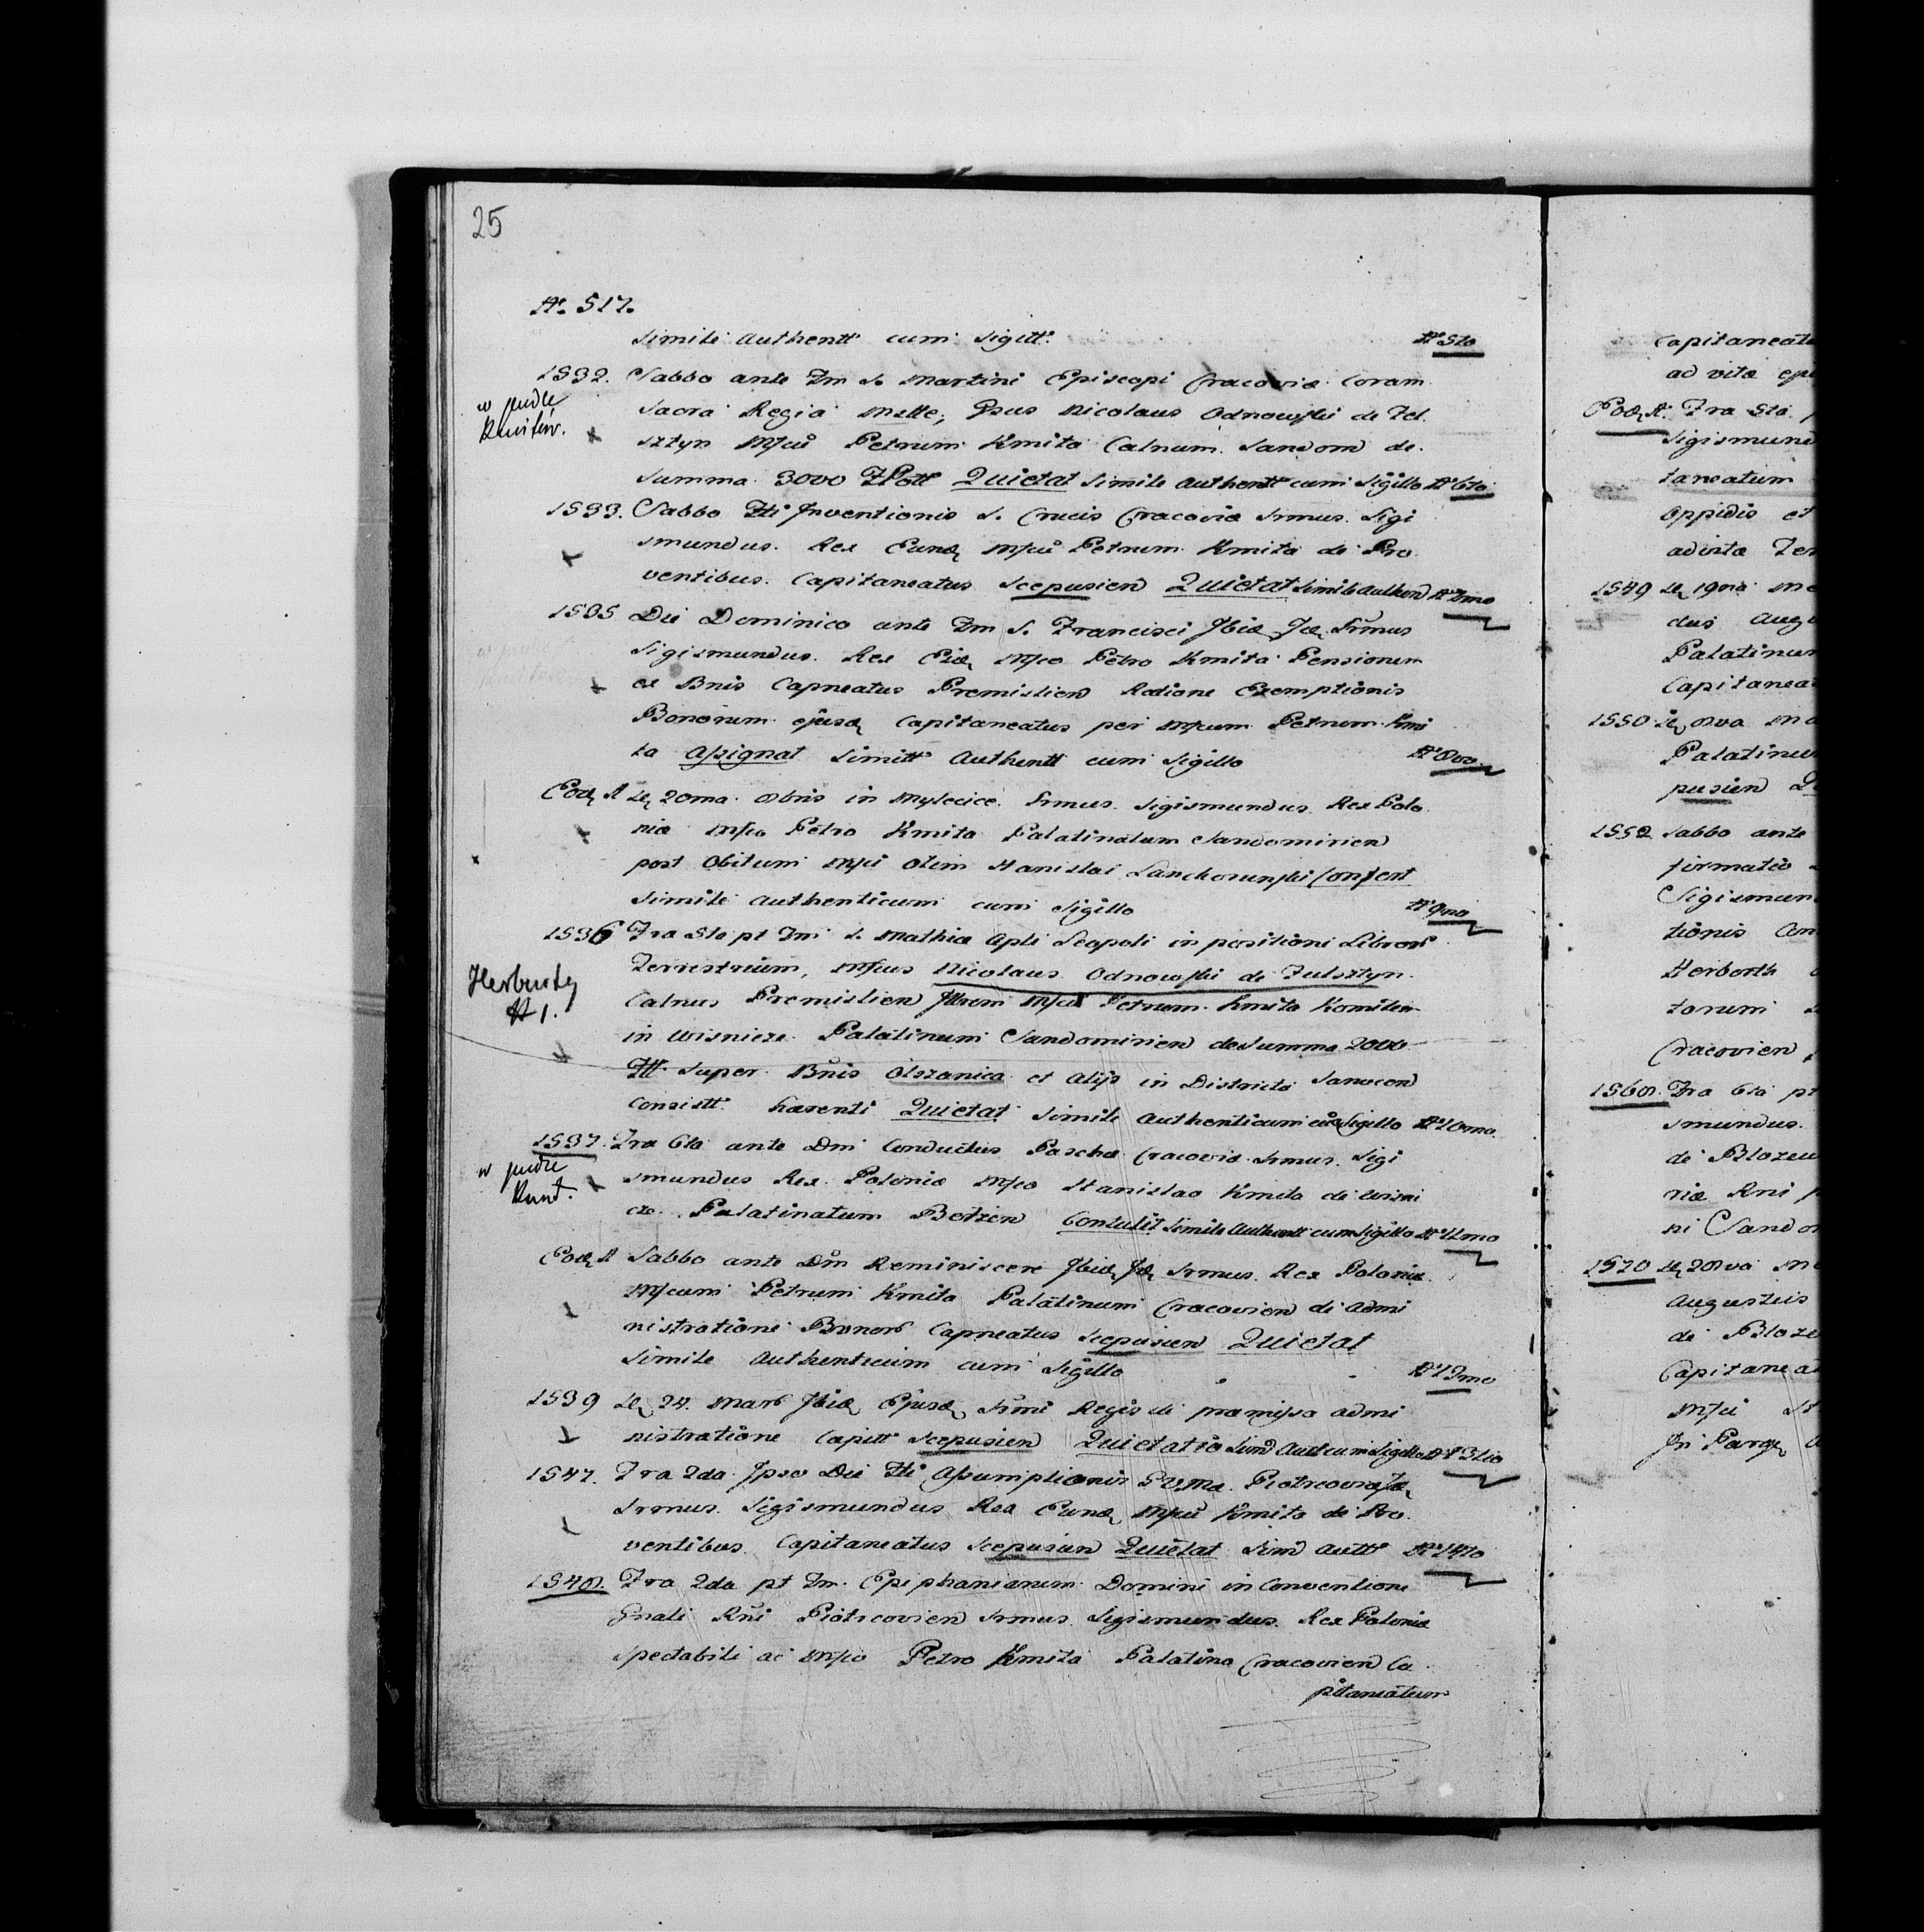 25
Aº. 517.
Simile Authentt cum Sigill. Nº 5to
1532. Sabbo ante Fm S. Martini Episcopi Cracoviæ Coram
w pudle
Kwitów.
Sacra Regia Mtte, Gsus Nicolaus Odnowski de Fel.
sztyn Mfcū Petrum Kmita Calnum Sandom de.
Summa 3000 Flott Quietat Simile Authentt cum Sigillo Nº 6to
1533. Sabbo Fti Inventionis S. Crucis Cracoviæ Srmus. Sigi
smundus. Rex Eund Mfcū Petrum Kmita de Pro
ventibus. Capitaneatus Scepusien Quietat Simile Authen Nº 7mo
1535 Die Dominico ante Fm S. Francisci Ibid Id. Srmus
Sigismundus. Rex Eid Mfco Petro Kmita Pensionem
ex Bnis Capneatus Premislien Ratione Exemptionis
Bonorum ejusd Capitaneatus per Mfcum Petrum Kmi
ta Assignat Simitt Authentt cum Sigillo Nº 8vo
Eod A De 20ma 8bris in Myslecice Srmus. Sigismundus Rex Polo
niæ Mfco Petro Kmita Palatinatum Sandomirien
post Obitum Mfci Olim Stanislai Lanckorunski Confert
Simile Authenticum cum Sigillo Nº 9no
1536 Fra 5to pt Fm S. Mathiæ Apli Leopoli in positione Libror
Terrestrium, Mfcus Nicolaus Odnowski de Fulsztyn
Herburty
Nº 1.
Calnus Premislien Mfcū Petrum Kmita Komitem
in Wisnicze Palatinum Sandomirien de Summa 2000
Fll. Super Bnis Olszanica et Alijs in Districto Sanocen
Consistt. hærenti Quietat Simile Authenticum cū Sigillo Nº 10mo
1537. Fra 6ta ante Dm Conductus Paschæ Cracoviæ Srmus. Sigi
w pudle
Kwit.
smundus Rex Poloniæ Mfco Stanislao Kmita de Wisni
cze Palatinatum Betzen Contulit Simile Authentt cum Sigillo Nº 11mo
Eod A Sabbo ante Dm Reminiscere Ibid Id Srmus. Rex Poloniæ
Mfcum Petrum Kmita Palatinum Cracovien de Admi
nistratione Bonor Capneatus Scepusien Quietat
Simile Authenticum cum Sigillo Nº 12mo
1539 De 24. Mar Ibid Ejusd Srmi Regis de præmissa admi
nistratione Capitt Scepusien Quietatio Sim Autt cum Sigillo Nº 13tio
1547. Fra 2da Ipso Die Fti Assumptionis BVMæ Piotrcoviæ Id
Srmus. Sigismundus Rex Eund Mfcū Kmita de Pro
ventibus Capitaneatus Scepusien Quietat Sim Autt Nº 14to
1548. Fra 2da pt Fm. Epiphaniarum Domini in Conventione
Gnali Rni Piotrcovien Srmus. Sigismundus. Rex Poloniæ
Spectabili ac Mfco Petro Kmita Palatino Cracovien Ca
pitaneatum
Capitaneatu
ad vitæ
Eod A. Fra 5ta
Sigismund
taneatum
Oppidis et
advita
1549 De 19na
dus Aug
Palatinum
Capitanea
1550 De 8va
Palatinum
pusien
1552 Sabbo ante
firmatio
Sigismun
tionis
Herborth
torum
Cracovien
1568. Fra 6ta pt
smundus.
de Blozew
riæ Rni
ni Sandom
1570 De 28va
Augustus
de Bloze
Capitanea
Mfci